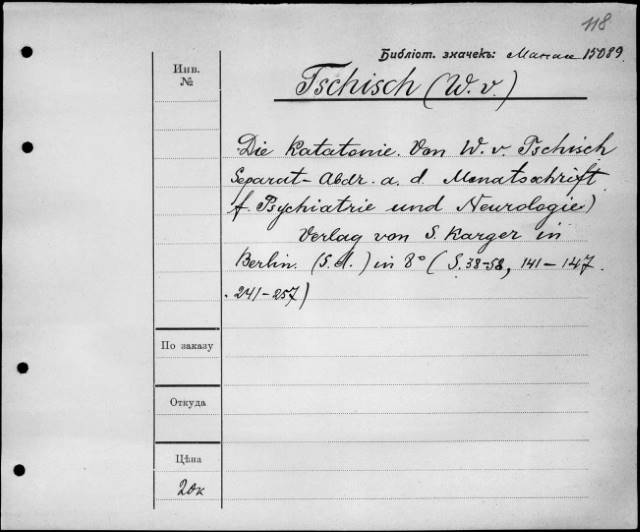 118
Библіот. значекъ: Магаз 15089.
Инв.
№
Tschisch (W. v.)
Die Katatonie. Von W. v. Tschisch
Separat-Abdr. a. d. Monatsschrift
f. Psychiatrie und Neurologie)
Verlag von S. Karger in
Berlin. (S. d.) in 8° (S. 38-58, 141-147.
. 241-257)
По заказу
Откуда
Цѣна
20к